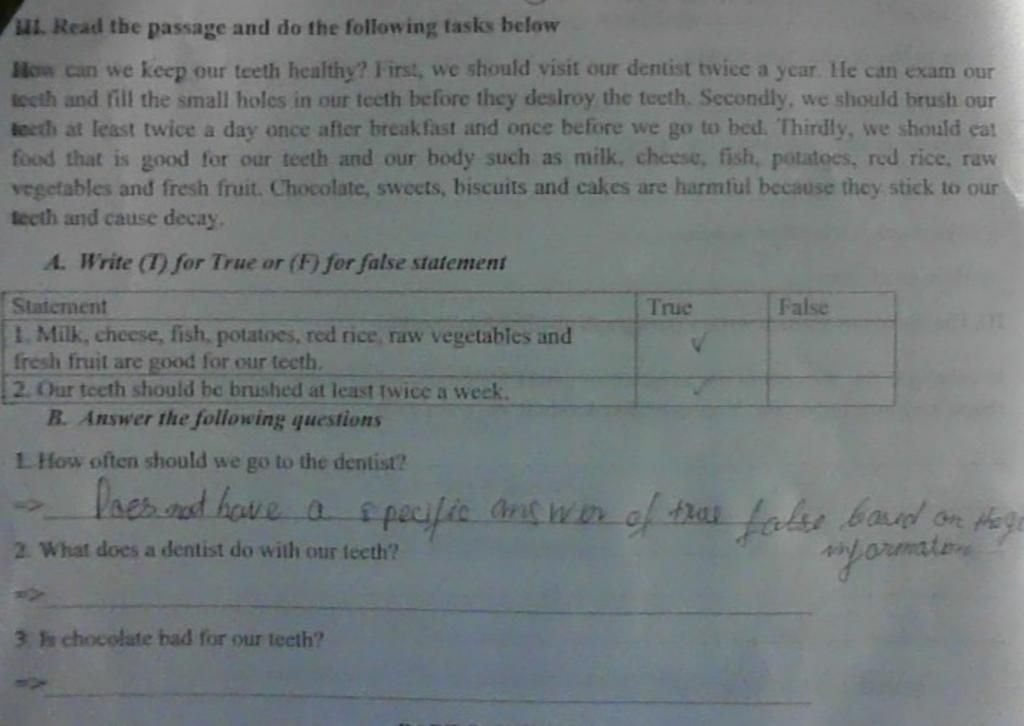 III. Read the passage and do the following tasks below
How can we keep our teeth healthy? First, we should visit our dentist twice a year. He can exam our
teeth and fill the small holes in our teeth before they deslroy the teeth. Secondly, we should brush our
teeth at least twice a day once after breakfast and once before we go to bed. Thirdly, we should eat
food that is good for our teeth and our body such as milk, cheese, fish, potatoes, red rice, raw
vegetables and fresh fruit. Chocolate, sweets, biscuits and cakes are harmful because they stick to our
teeth and cause decay.
A. Write (T) for True or (F) for false statement
Statement True False
1. Milk, cheese, fish, potatoes, red rice, raw vegetables and
fresh fruit are good for our teeth. ✓
2. Our teeth should be brushed at least twice a week. ✓
B. Answer the following questions
1. How often should we go to the dentist?
=> Does not have a specific answer of true false based on
information
2. What does a dentist do with our teeth?
=>
3. Is chocolate bad for our teeth?
=>